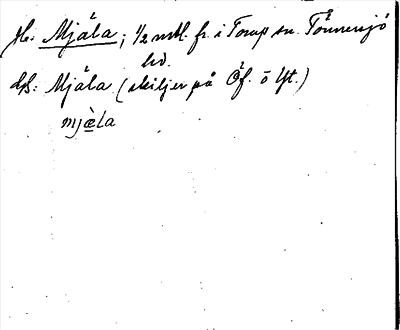 Hc. Mjäla; 1/2 mtl. fr. i Torup sn. Tönnersjö hd.
ds: Mjäla (skiljer på Öf. o Yt.)
mjæla